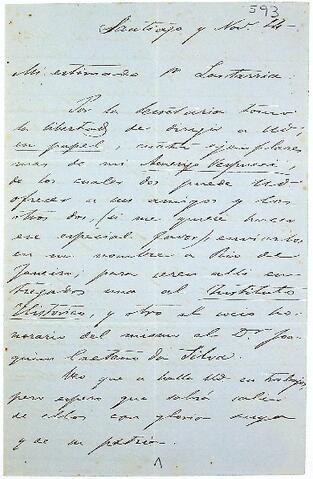 593
Santiago y Nov.
Mi estimado Sr Lastarria.
Por la
la libertad de dirigir a Ud,
un papel, cuatro ejemplares
mas de mi Amerigo Vespucci
de los cuales dos puede Ud
ofrecer a sus amigos y los
otros dos, (si me quiere hacer
ese especial favor) enviarlos
en mi nombre a Rio de
Janeiro, para ser alli en-
tregados uno al Instituto
Historico, y otro al socio ho-
norario del mismo el Dr. Joa-
quim Caetano da Silva.
Veo que a Ud en trabajos,
pero espero que sabrá salir
de ellos con gloria suya
y de su patria.